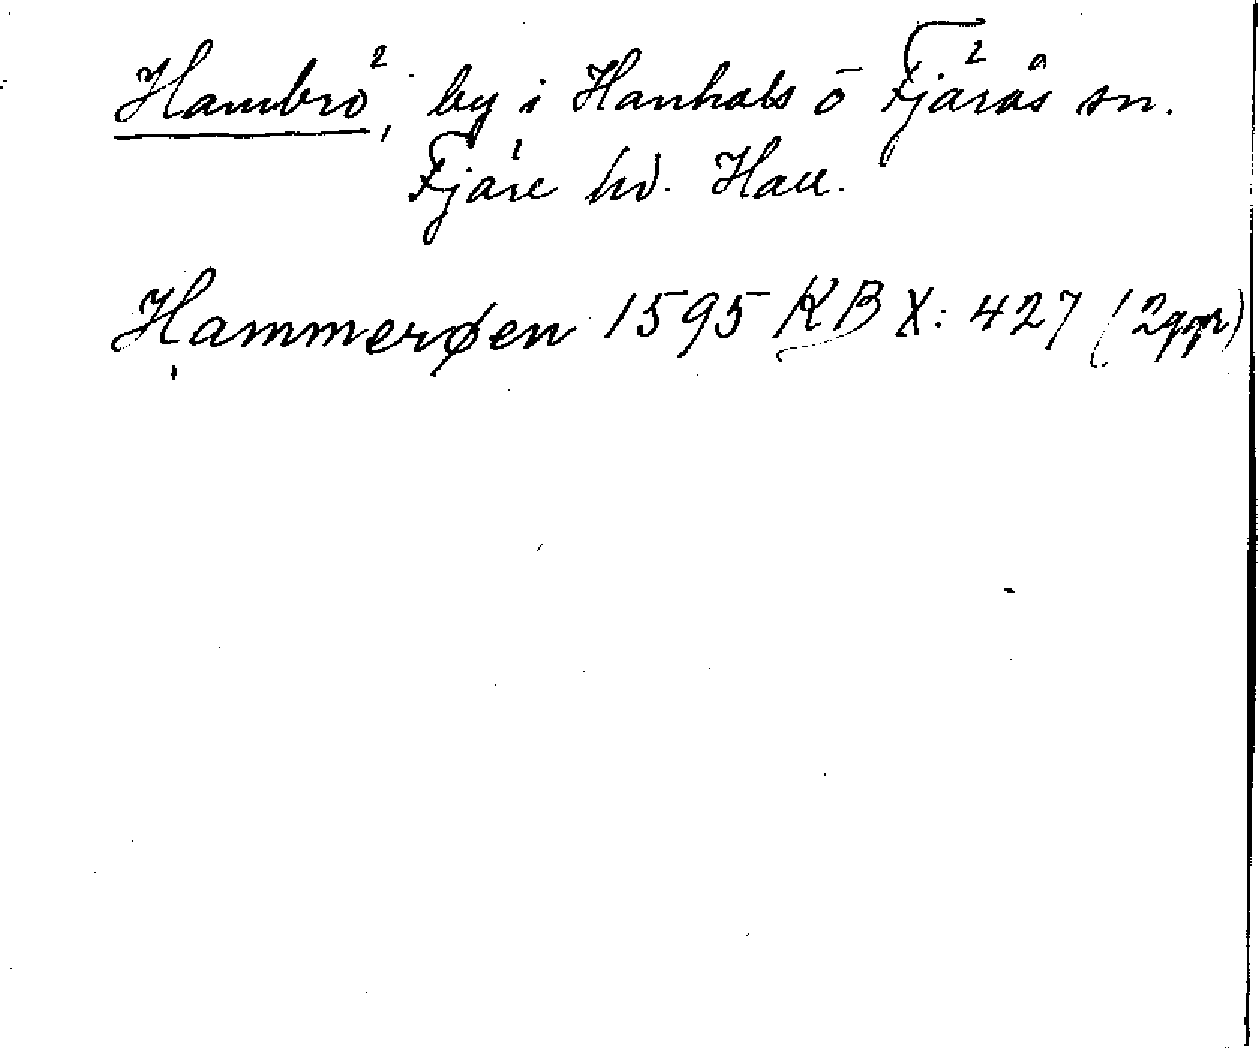 Hambro², by i Hanhals o Fjärås sn.
Fjäre hd. Hall.
Hammerøen 1595 KB X: 427 (2ggr)